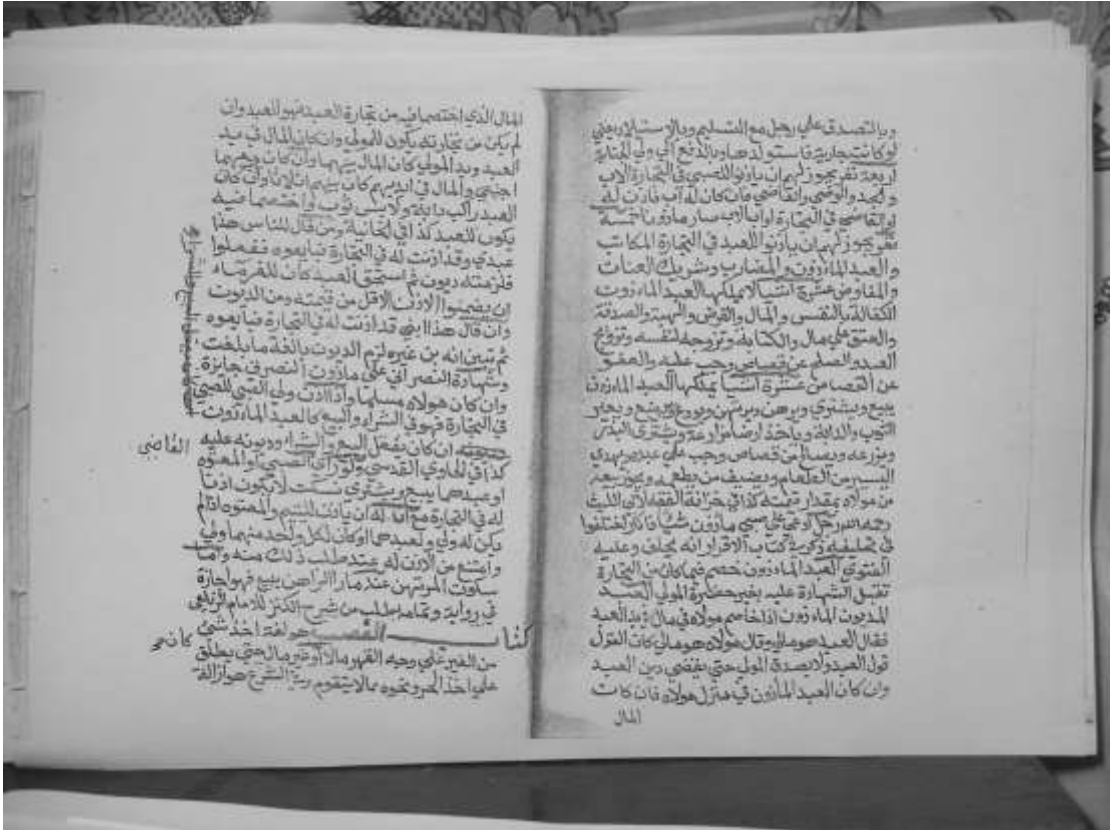 وبالتصدق علي رجل مع التسليم وبالاستيلاد يعني
لو كانت جارية فاستولدها وبالدفع الي ولي الجناية
اربعة نفر يجوز لهم ان ياذنوا للصبي في التجارة الاب
والجد والوصي والقاضي فان كان له اب فاذن له
القاضي في التجارة وابي الاب صار ماذونا خمسة
نفر يجوز لهم ان ياذنوا للعبد في التجارة المكاتب
والعبد الماذون والمضارب وشريك العنان
والمفاوض عشرة اشيا لا يملكها العبد الماذون
الكفالة بالنفس والمال والقرض والهبة والصدقة
والعتق علي مال والكتابة وتزوجه لنفسه وتزويج
العبد والصلح عن قصاص وجب عليه والعفو
عن القصاص عشرة اشيا يملكها العبد الماذون
يبيع ويشتري ويرهن ويرتهن ويودع
الثوب والدابة وياخذ ارضا مزارعة ويشتري البذر
ويزرعه ويصالح من قصاص وجب علي عبده ويهدي
اليسير من الطعام ويضيف من يطعمه
من مولاه بمقدار قيمته كذا في خزانة الفقه لابي الليث
رحمه الله رجل ادعي علي صبي ماذون شيا فانكر اختلفوا
في تحليفه ذكر في كتاب الاقرار انه يحلف وعليه
الفتوي العبد الماذون خصم فيما كان من التجارة
تقبل الشهادة عليه بغير حضرة المولي العبد
المديون الماذون اذا خاصم مولاه في مال في يد العبد
فقال العبد هو مالي وقال مولاه هو مالي كان القول
قول العبد ولا يصدق المولي حتي يقضي دين العبد
وان كان العبد الماذون في منزل مولاه فان كان
المال
المال الذي اختصما فيه من تجارة العبد فهو للعبد وان
لم يكن من تجارته يكون للمولي وان كان المال في يد
العبد ويد المولي كان المال بينهما وان كان معهما
اجنبي والمال في ايديهم كان بينهم اثلاثا وان كان
العبد راكب دابة او لابس ثوب اختصما فيه
يكون للعبد كذا في الخانية ومن قال للناس هذا
عبدي وقد اذنت له في التجارة فبايعوه ففعلوا
فلزمته ديون ثم استحق العبد كان للغرماء
ان يضمنوا الاذن الاقل من قيمته ومن الديون
وان قال هذا ابني قد اذنت له في التجارة فبايعوه
ثم تبين انه بن غيره لزم الديون بالغة ما بلغت
وشهادة النصراني علي ماذون النصرني جايزة
وان كان مولاه مسلما واذا اذن ولي الصبي للصبي
في التجارة فهو في الشراء والبيع كالعبد الماذون
ان كان يعقل البيع والشراء وديونه عليه
كذا في الحاوي القدسي ولو راي الصبي او المعتوه
او عبدهما يبيع ويشتري فسكت لا يكون اذنا
له في التجارة مع ان له ان ياذن لليتيم والمعتوه اذا لم
يكن له ولي ولعبدهما او كان لكل واحد منهما ولي
وامتنع من الاذن له عند طلب ذلك منه واما
سكوت المرتهن عند ما راي الراهن يبيع فهو اجازة
في رواية وتمامه اطلب من شرح الكنز للامام الزيلعي
كتاب الغصب هو لغة اخذ شي
من الغير علي وجه القهر مالا او غير مال حتي يطلق
علي اخذ الحر ونحوه مما لا يتقوم وفي الشرع هو ازالة
القاضي
كان